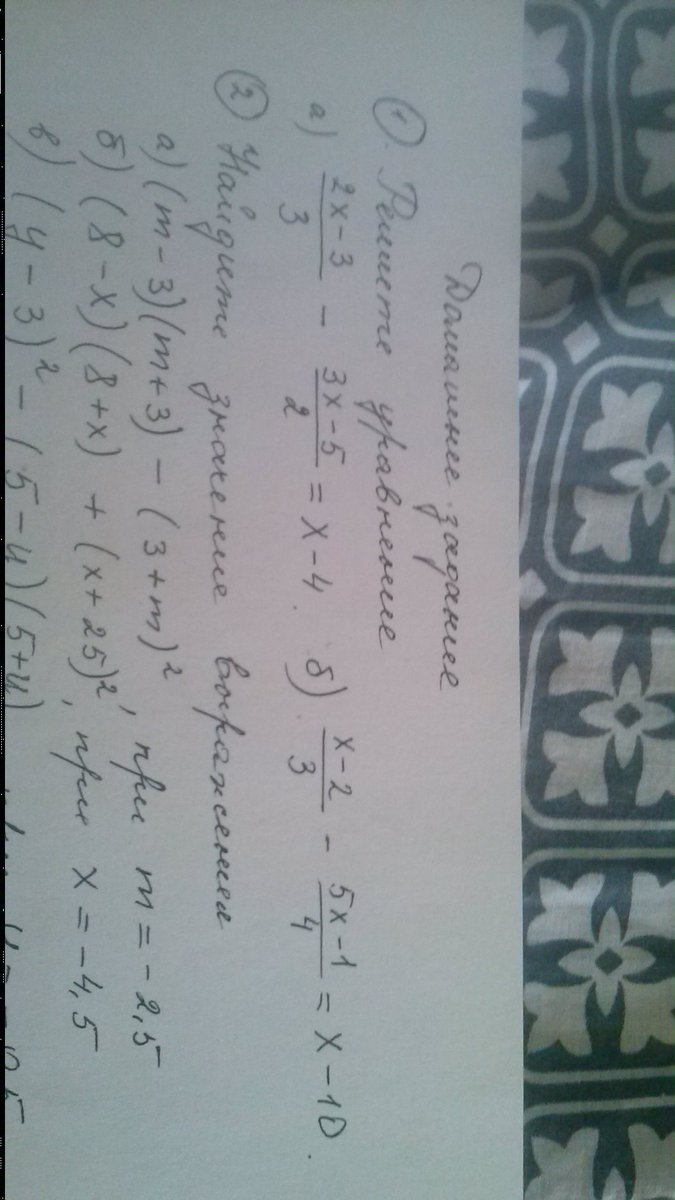 Домашнее задание
① Решите уравнение
а) (2x-3)/3 - (3x-5)/2 = x-4. б) (x-2)/3 - (5x-1)/4 = x-10.
② Найдите значение выражения
а) (m-3)(m+3) - (3+m)², при m = -2,5
б) (8-x)(8+x) + (x+25)², при x = -4,5
в) (y-3)² - (5-y)(5+y)